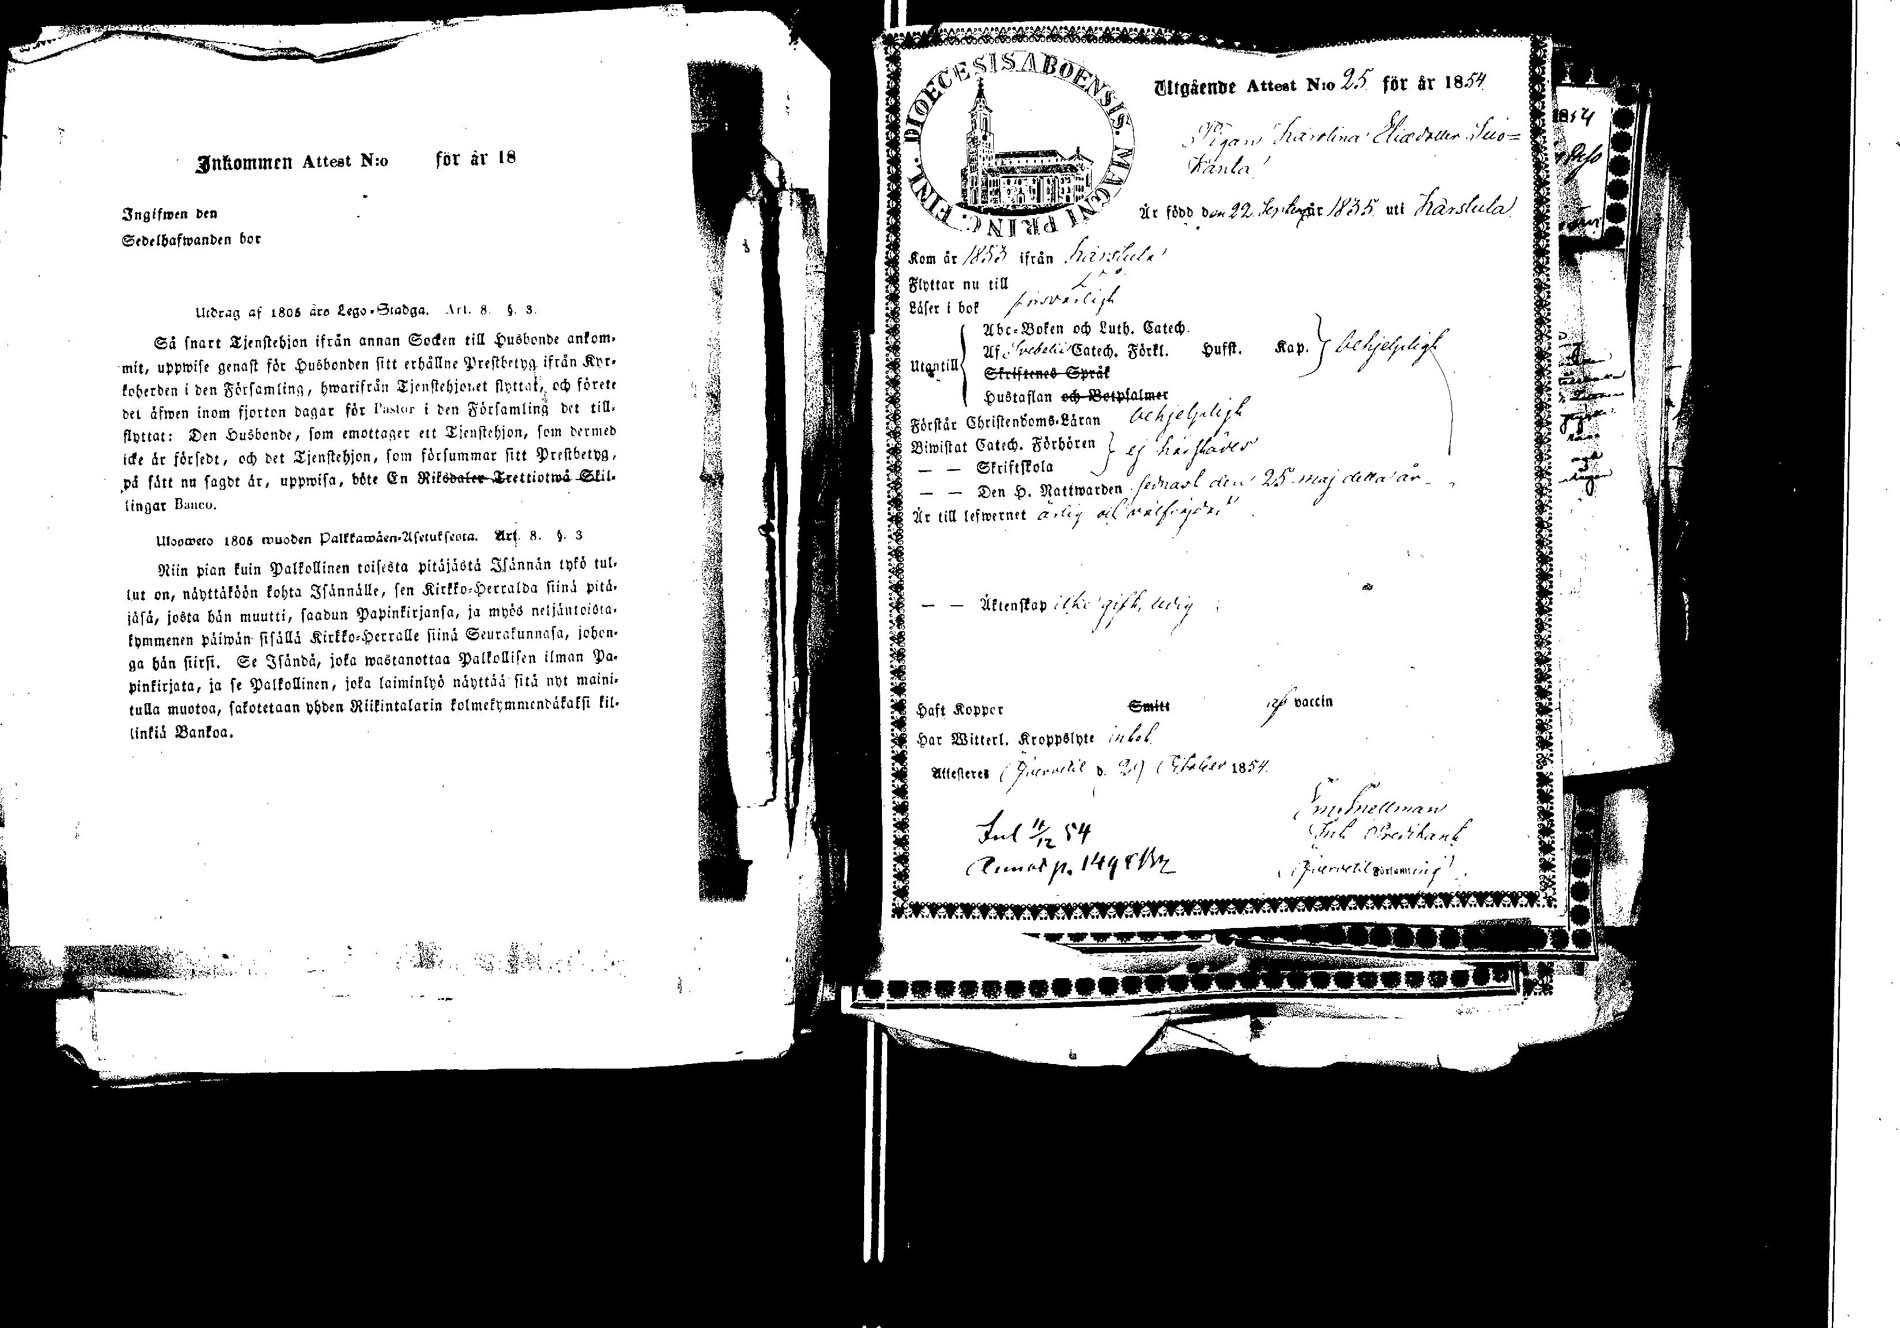 Inkommen Attest N:o för år 18
Ingifwen den
Sedelhafwanden bor
Utdrag af 1805 års Lego-Stadga. Art. 8. §. 3.
Så snart Tjenstehjon ifrån annan Socken till Husbonde ankom-
mit, uppwise genast för Husbonden sitt erhållne Prestbetyg ifrån Kyr-
koherden i den Församling, hwarifrån Tjenstehjonet flyttat, och förete
det äfwen inom fjorton dagar för Pastor i den Församling det till-
flyttat: Den Husbonde, som emottager ett Tjenstehjon, som dermed
icke är försedt, och det Tjenstehjon, som försummar sitt Prestbetyg,
på sätt nu sagdt är, uppwisa, böte En Riksdaler Trettiotwå Skil-
lingar Banco.
Ulosweto 1805 wuoden Palkkawäen-Asetuksesta. Art. 8. §. 3
Niin pian kuin Palkollinen toisesta pitäjästä Isännän tykö tul-
lut on, näyttäköön kohta Isännälle, sen Kirkko-Herralda siinä pitä-
jäsä, josta hän muutti, saadun Papinkirjansa, ja myös neljäntoista-
kymmenen päiwän sisällä Kirkko-Herralle siinä Seurakunnasa, johon-
ga hän siirsi. Se Isändä, joka wastanottaa Palkollisen ilman Pa-
pinkirjata, ja se Palkollinen, joka laiminlyö näyttää sitä nyt maini-
tulla muotoa, sakotetaan yhden Riikintalarin kolmekymmendäkaksi kil-
linkiä Bankoa.
DIOECESIS ABOENSIS. MAGNI PRINC. FINL.
Utgående Attest N:o 25 för år 1854
Pigan Karolina Eliædotter Suo=
kanta
Är född den 22 September 1835 uti Karstula
Kom år 1853 ifrån Karstula
Flyttar nu till
Läser i bok försvarligt
Abc-Boken och Luth. Catech.
Utantill Af Svebelii Catech. Förkl. Husst. Kap. behjelpligt
Skriftenes Språk
Hustaflan och Botpsalmer
Förstår Christendoms-Läran behjelpligt
Biwistat Catech. Förhören
— — Skriftskola ej härstädes
— — Den H. Nattwarden sednast den 25 maj detta år
Är till lefwernet ärlig och välfrejdad
— — Äktenskap icke gift, ledig
Haft Koppor Smitt vaccin
Har Witterl. Kroppslyte intet
Attesteras d. October 1854.
Snellman
Predikant
Församling
Inl 11/12 54
p. 149
1854